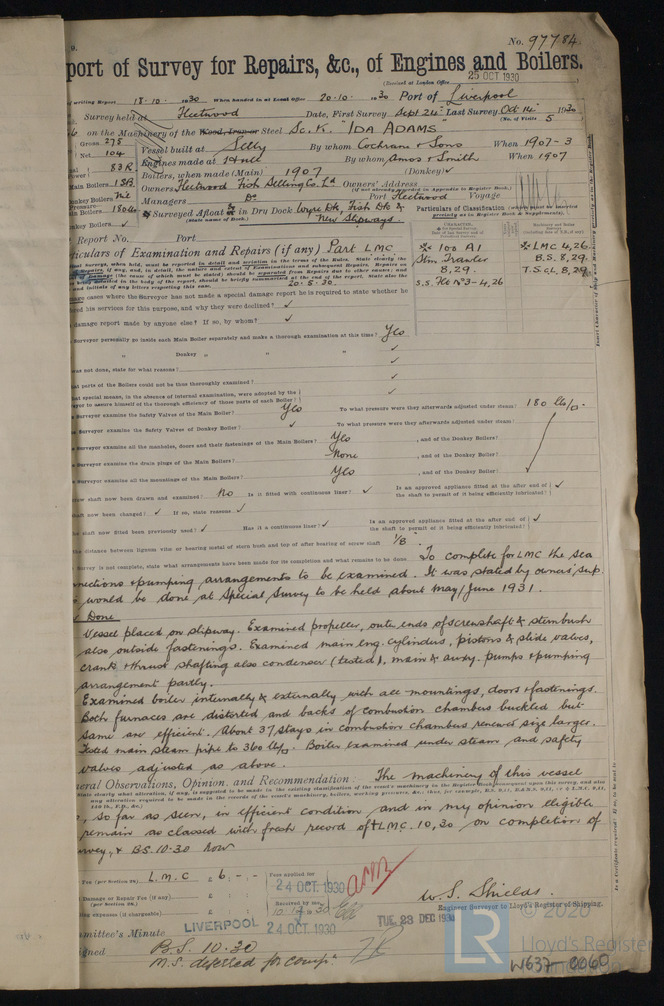 No. 97784
port of Survey for Repairs, &c., of Engines and Boilers.
(Received at London Office
25 OCT 1930
of writing Report 18.10.1930 When handed in at Local Office 20.10.1930 Port of Liverpool
Survey held at Fleetwood Date, First Survey Sept 24th Last Survey Oct 14th 1930
(No. of Visits 5
on the Machinery of the Wood, Iron or Steel Sc. K. "IDA ADAMS"
Gross 275
Net 104
Vessel built at Selby By whom Cochrane & Sons When 1907-3
Engines made at Hull By whom Amos & Smith When 1907
83 R.
Boilers, when made (Main) 1907 (Donkey) ✓
Main Boilers 1SB
Owners Fleetwood Fish Selling Co. Ld Owners' Address
(If not already recorded in Appendix to Register Book.)
Donkey Boilers Nil
Managers Do Port Fleetwood Voyage
Main Boilers 180 lb
Surveyed Afloat or in Dry Dock Wyre Dk, Fish Dk &
(State name of Dock.) New Slipways.
Donkey Boilers ✓
Particulars of Classification
Report No. Port
✠ 100 A1
Stm Trawler
8,29.
S.S. Flo No 3-4,26
✠ LMC 4,26.
B.S. 8,29.
T.S. CL 8,29
articulars of Examination and Repairs (if any) Part LMC
20.5.30
damage cases where the Surveyor has not made a special damage report he is required to state whether he
ed his services for this purpose, and why they were declined? ✓
damage report made by anyone else? If so, by whom? ✓
Surveyor personally go inside each Main Boiler separately and make a thorough examination at this time? Yes
" Donkey " " " ✓
was not done, state for what reasons? ✓
at parts of the Boilers could not be thus thoroughly examined? ✓
at special means, in the absence of internal examination, were adopted by the
yor to assure himself of the thorough efficiency of those parts of each Boiler? ✓
Surveyor examine the Safety Valves of the Main Boiler? Yes To what pressure were they afterwards adjusted under steam? 180 lb/□"
Surveyor examine the Safety Valves of Donkey Boiler? ✓ To what pressure were they afterwards adjusted under steam?
Surveyor examine all the manholes, doors and their fastenings of the Main Boilers? Yes , and of the Donkey Boiler?
Surveyor examine the drain plugs of the Main Boilers? None , and of the Donkey Boiler?
Surveyor examine all the mountings of the Main Boilers? Yes , and of the Donkey Boiler?
ew shaft now been drawn and examined? No Is it fitted with continuous liner? ✓ Is an approved appliance fitted at the after end of
the shaft to permit of it being efficiently lubricated? ✓
shaft now been changed? ✓ If so, state reasons ✓
the shaft now fitted been previously used? ✓ Has it a continuous liner? ✓ Is an approved appliance fitted at the after end of
the shaft to permit of it being efficiently lubricated? ✓
the distance between lignum vitæ or bearing metal of stern bush and top of after bearing of screw shaft 1/8"
Survey is not complete, state what arrangements have been made for its completion and what remains to be done To complete for LMC the sea
nnections & pumping arrangements to be examined. It was stated by owners' sup.
would be done at Special Survey to be held about May/June 1931.
Done
Vessel placed on slipway. Examined propeller, outer ends of screwshaft & sternbush
also outside fastenings. Examined main eng. cylinders, pistons & slide valves,
crank & thrust shafting also condenser (tested), main & auxy. pumps & pumping
arrangement partly.
Examined boiler internally & externally with all mountings, doors & fastenings.
Both furnaces are distorted and backs of combustion chambers buckled but
same are efficient. About 37 stays in combustion chambers renewed size larger.
Tested main steam pipe to 360 lbs. Boiler examined under steam and safety
valves adjusted as above.
eral Observations, Opinion, and Recommendation:— The machinery of this vessel
, so far as seen, in efficient condition and in my opinion eligible
remain as classed with fresh record of ✠LMC. 10,30 on completion of
survey, & B.S. 10.30 now
Fee (per Section 29.) L.M.C £ 6 : - : - Fees applied for
24 OCT 1930
Damage or Repair Fee (if any) £ : :
(per Section 29.)
ing expenses (if chargeable) £ : : Received by me,
W. S. Shields.
Engineer Surveyor to Lloyd's Register of Shipping.
mmittee's Minute LIVERPOOL 24 OCT 1930 TUE. 23 DEC 1930
igned B.S. 10.30
M.S. deferred for comp:
LR © 2020
Lloyd's Register
W637-0060